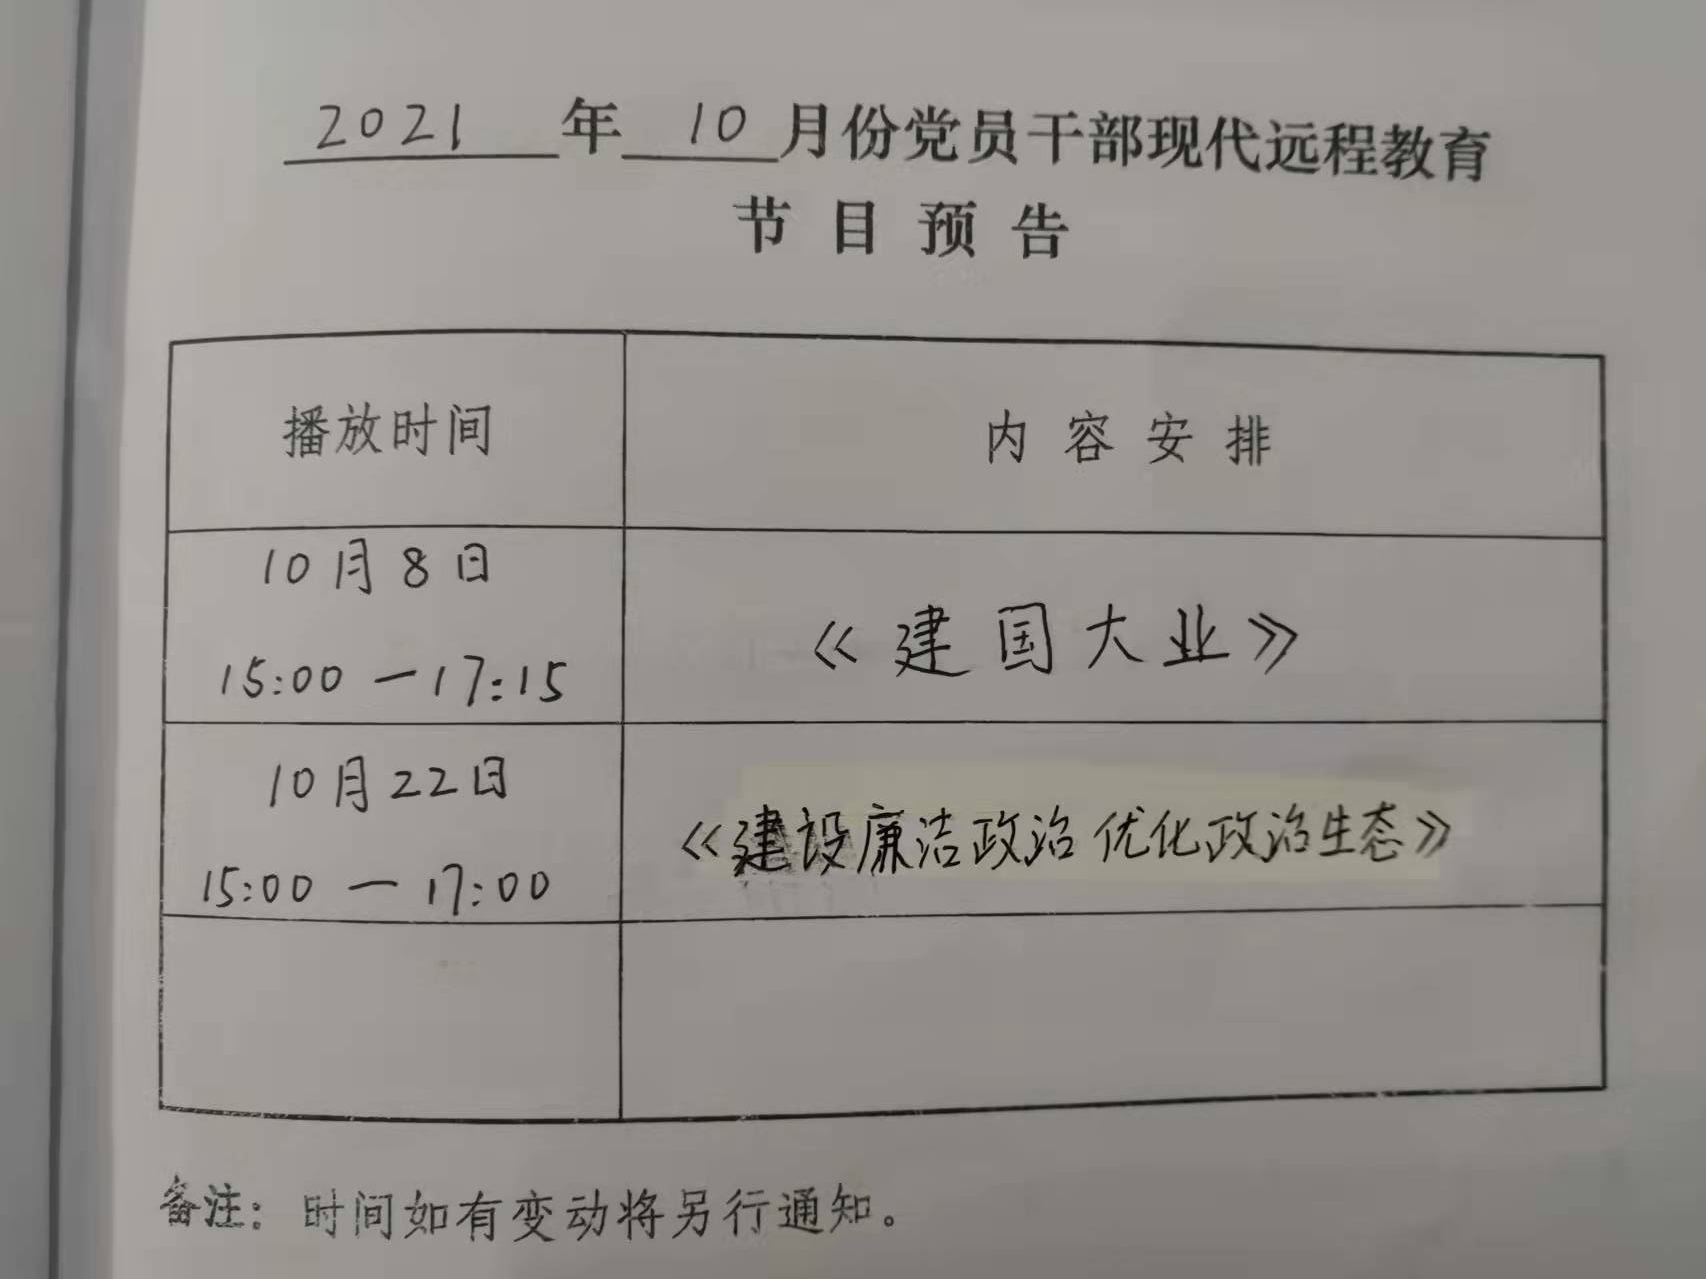 2021年10月份党员干部现代远程教育
节目预告
播放时间 内容安排
10月8日
15:00—17:15
《建国大业》
10月22日
15:00—17:00
《建设廉洁政治 优化政治生态》
备注：时间如有变动将另行通知。